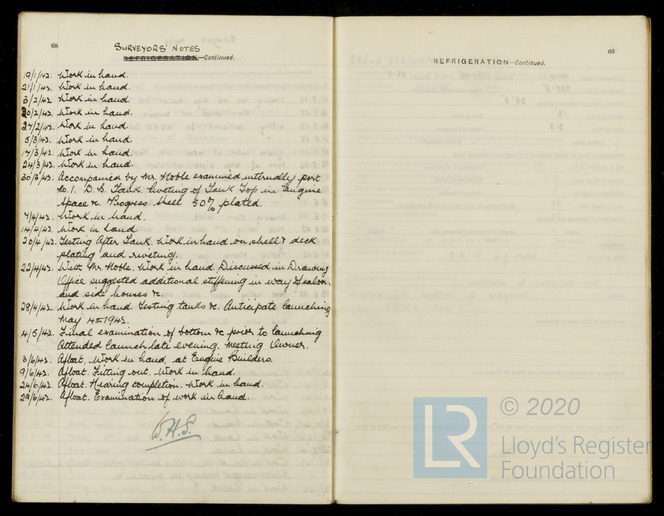 68
SURVEYORS' NOTES
REFRIGERATION—Continued.
19/1/42. Work in hand.
21/1/42. Work in hand.
3/2/42. Work in hand
20/2/42. Work in hand.
27/2/42. Work in hand.
5/3/42. Work in hand.
17/3/42. Work in hand.
24/3/42. Work in hand.
30/3/42. Accompanied by Mr. Hoble examined internally port
No. 1. D.B. Tank. Riveting of Tank Top in Engine
Space &c. Progress Shell 50% plated.
7/4/42. Work in hand.
14/4/42. Work in hand
20/4/42. Testing After Tank. Work in hand on shell & deck
plating and riveting.
22/4/42. With Mr Hoble. Work in hand. Discussed in Drawing
Office suggested additional stiffening in way
and side houses &c.
28/4/42. Work in hand. Testing tanks &c. Anticipate launching
May 4th 1942.
4/5/42. Final examination of bottom &c prior to launching
Attended launch late evening. Meeting Owner.
3/6/42. Afloat. Work in hand, at Engine Builders.
9/6/42. Afloat. Fitting out. Work in hand.
24/6/42. Afloat. Nearing completion. Work in hand.
29/6/42. Afloat. Examination of work in hand.
W.H.S.
69
REFRIGERATION—Continued.
LR
© 2020
Lloyd's Register
Foundation